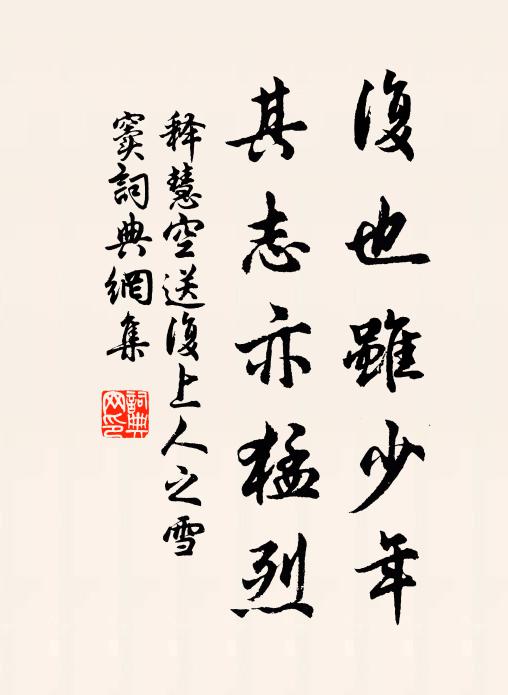 復也雖少年
其志亦猛烈
释慧空送復上人之雪
窦詞典網集
詞典
网印